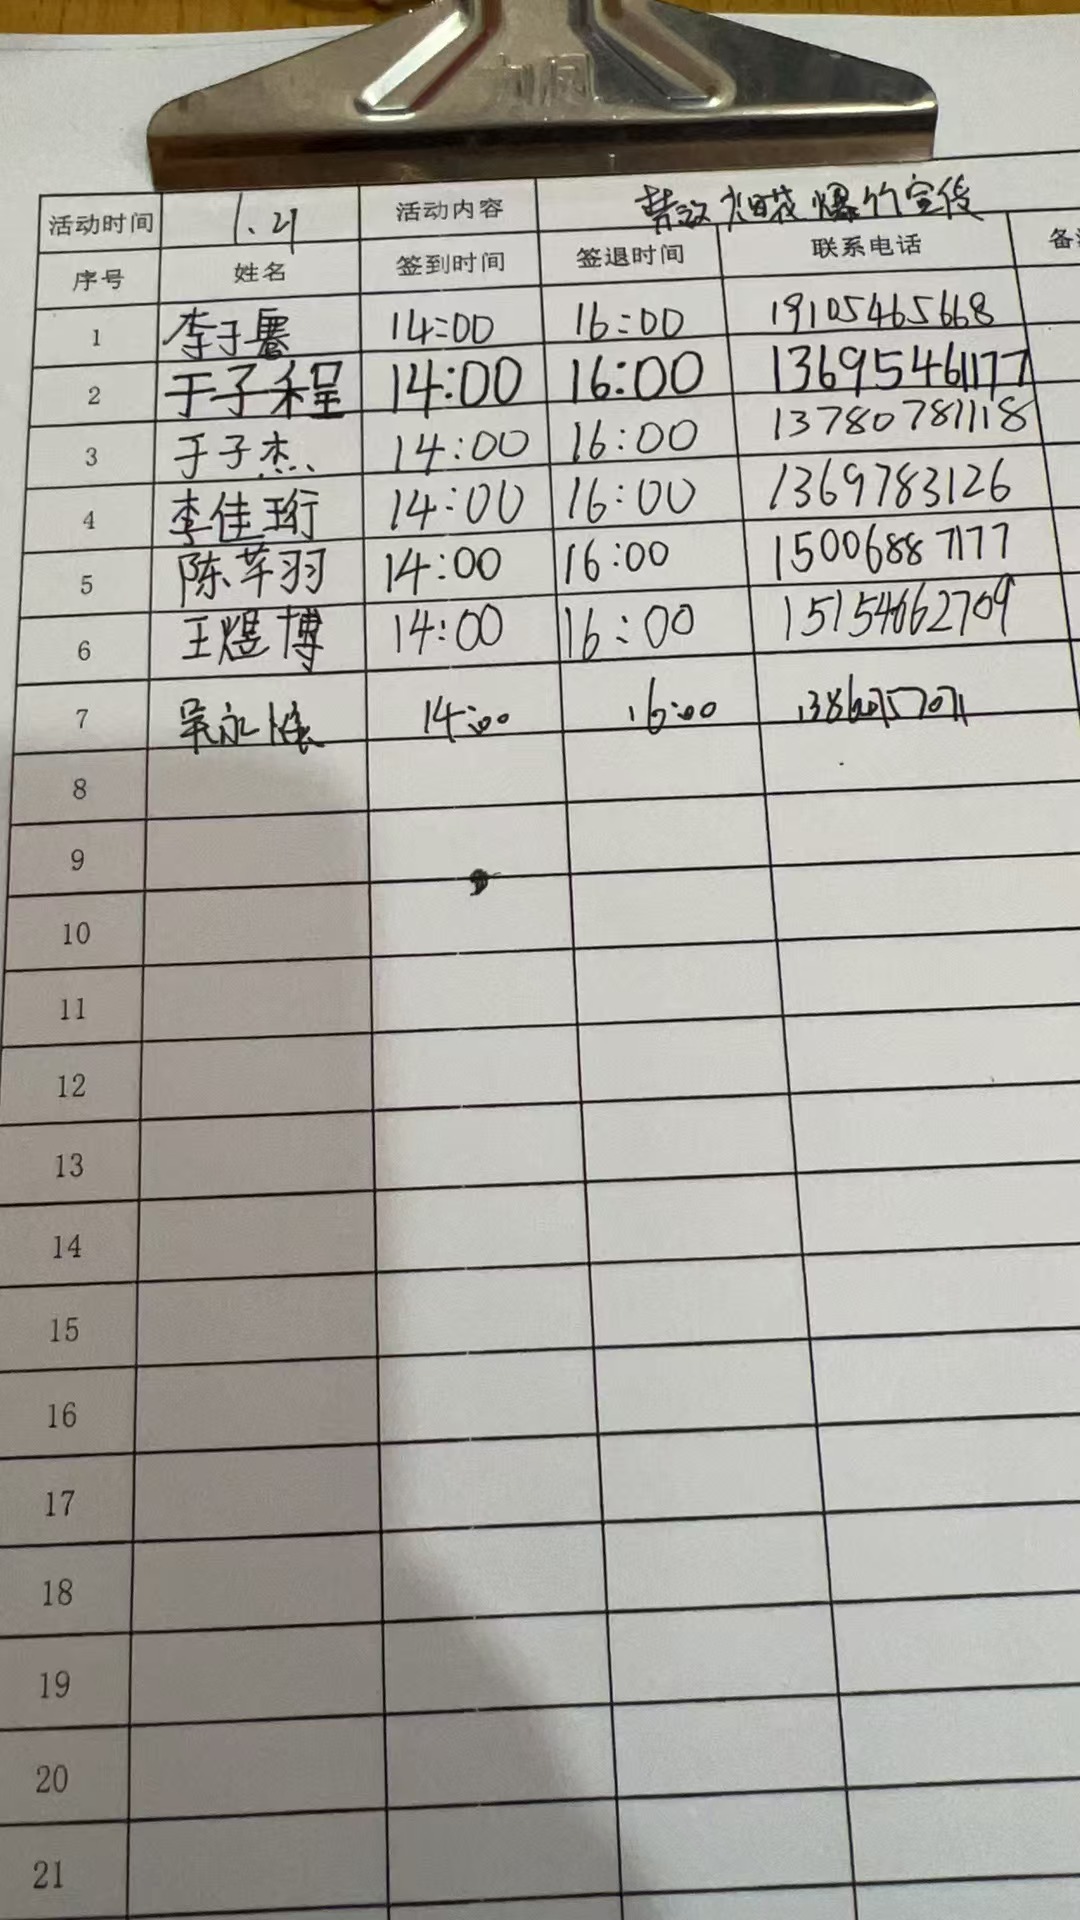 活动时间 1.21 活动内容 禁放烟花爆竹宣传
序号 姓名 签到时间 签退时间 联系电话
1 李于 14:00 16:00 19105465668
2 于子程 14:00 16:00 13695461177
3 于子杰 14:00 16:00 13780781118
4 李佳珩 14:00 16:00 1369783126
5 陈芊羽 14:00 16:00 15006887177
6 王煜博 14:00 16:00 15154662709
7 吴永 14:00 16:00
8
9
10
11
12
13
14
15
16
17
18
19
20
21